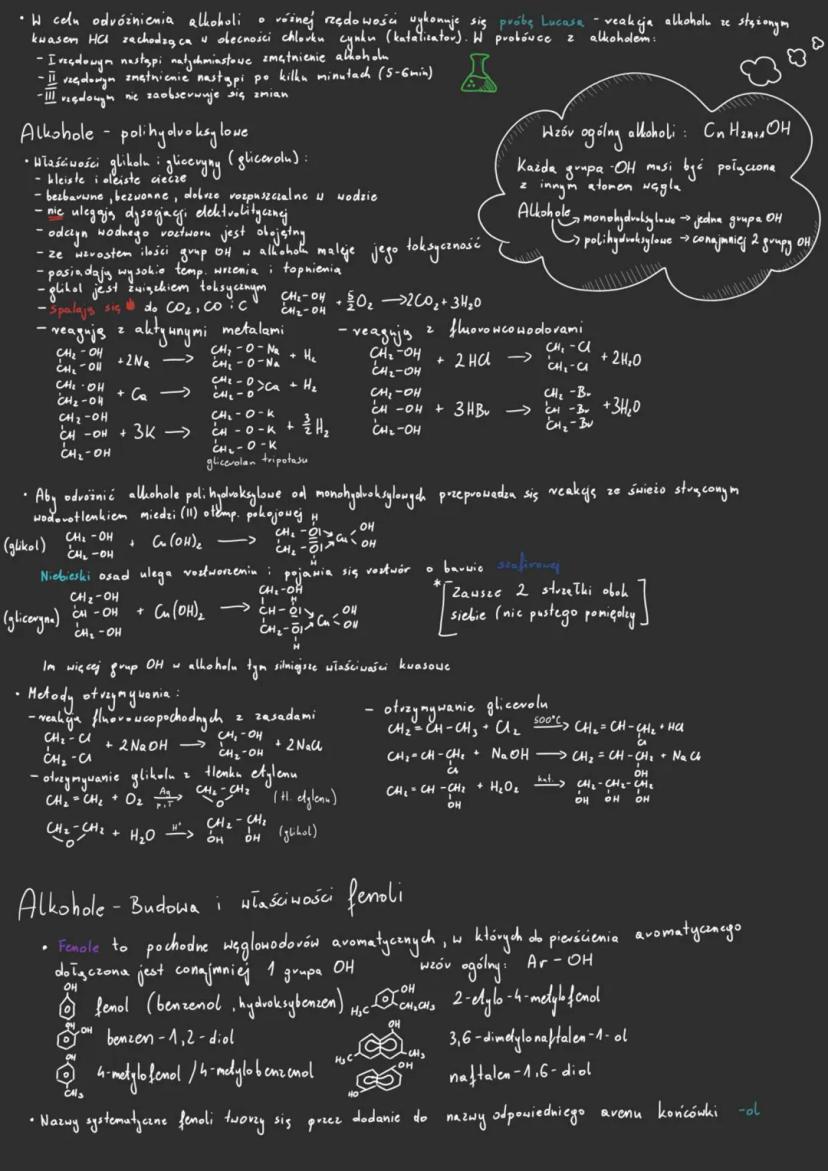 • W celu odróżnienia alkoholi o różnej rzędowości wykonuje się próbę Lucasa - reakcja alkoholu ze stężonym
kwasem HCl zachodząca w obecności chlorku cynku (katalizator). W probówce z alkoholem:
- I rzędowym nastąpi natychmiastowe zmętnienie alkoholu
- II rzędowym zmętnienie nastąpi po kilku minutach (5-6min)
- III rzędowym nie zaobserwuje się zmian
Wzór ogólny alkoholi: CnH2n+1OH
Każda grupa -OH musi być połączona
z innym atomem węgla
Alkohole
→ monohydroksylowe → jedna grupa OH
→ polihydroksylowe → conajmniej 2 grupy OH
Alkohole - polihydroksylowe
• Właściwości glikolu i gliceryny (glicerolu):
- kleiste i oleiste ciecze
- bezbarwne, bezwonne, dobrze rozpuszczalne w wodzie
- nie ulegają dysocjacji elektrolitycznej
- odczyn wodnego roztworu jest obojętny
- ze wzrostem ilości grup OH w alkoholu maleje jego toksyczność
- posiadają wysokie temp. wrzenia i topnienia
- glikol jest związkiem toksycznym
- spalają się do CO2, CO i C
CH2-OH
CH2-OH + 5/2 O2 → 2CO2 + 3H2O
- reagują z aktywnymi metalami
CH2-OH
CH2-OH + 2Na → CH2-O-Na
CH2-O-Na + H2
CH2-OH
CH2-OH + Ca → CH2-O
CH2-O >Ca + H2
CH2-OH
CH-OH + 3K → CH2-O-K
CH2-OH
CH-O-K + 3/2 H2
CH2-O-K
glicerolan tripotasu
- reagują z fluorowcowodorami
CH2-OH
CH2-OH + 2HCl → CH2-Cl
CH2-Cl + 2H2O
CH2-OH
CH-OH + 3HBr → CH2-Br
CH2-OH
CH-Br + 3H2O
CH2-Br
• Aby odróżnić alkohole polihydroksylowe od monohydroksylowych przeprowadza się reakcję ze świeżo strąconym
wodorotlenkiem miedzi (II) o temp. pokojowej
(glikol) CH2-OH
CH2-OH + Cu(OH)2 → H
CH2-O
CH2-O Cu OH
OH
H
Niebieski osad ulega roztworzeniu i pojawia się roztwór o barwie szafirowej
(gliceryna) CH2-OH
CH-OH + Cu(OH)2 → CH2-OH
CH2-OH
H
CH-O
CH2-O Cu OH
OH
H
* [Zawsze 2 strzałki obok
siebie (nic pustego pomiędzy]
Im więcej grup OH w alkoholu tym silniejsze właściwości kwasowe
• Metody otrzymywania:
- reakcja fluorowcopochodnych z zasadami
CH2-Cl
CH2-Cl + 2NaOH → CH2-OH
CH2-OH + 2NaCl
- otrzymywanie glikolu z tlenku etylenu
CH2=CH2 + O2 Ag p,T → CH2-CH2
O (tl. etylenu)
CH2-CH2
O + H2O H+ → CH2-CH2
OH OH (glikol)
- otrzymywanie glicerolu
CH2=CH-CH3 + Cl2 500°C → CH2=CH-CH2 + HCl
Cl
CH2=CH-CH2 + NaOH → CH2=CH-CH2 + NaCl
Cl OH
CH2=CH-CH2 + H2O2 kat. → CH2-CH2-CH2
OH OH OH OH
Alkohole - Budowa i właściwości fenoli
• Fenole to pochodne węglowodorów aromatycznych, w których do pierścienia aromatycznego
dołączona jest conajmniej 1 grupa OH wzór ogólny: Ar-OH
OH
fenol (benzenol, hydroksybenzen)
OH
OH
benzen-1,2-diol
OH
CH3
4-metylofenol / 4-metylobenzenol
OH
H3C CH2CH3
2-etylo-4-metylofenol
OH
H3C CH3
3,6-dimetylonaftalen-1-ol
OH
HO
naftalen-1,6-diol
• Nazwy systematyczne fenoli tworzy się przez dodanie do nazwy odpowiedniego arenu końcówki -ol